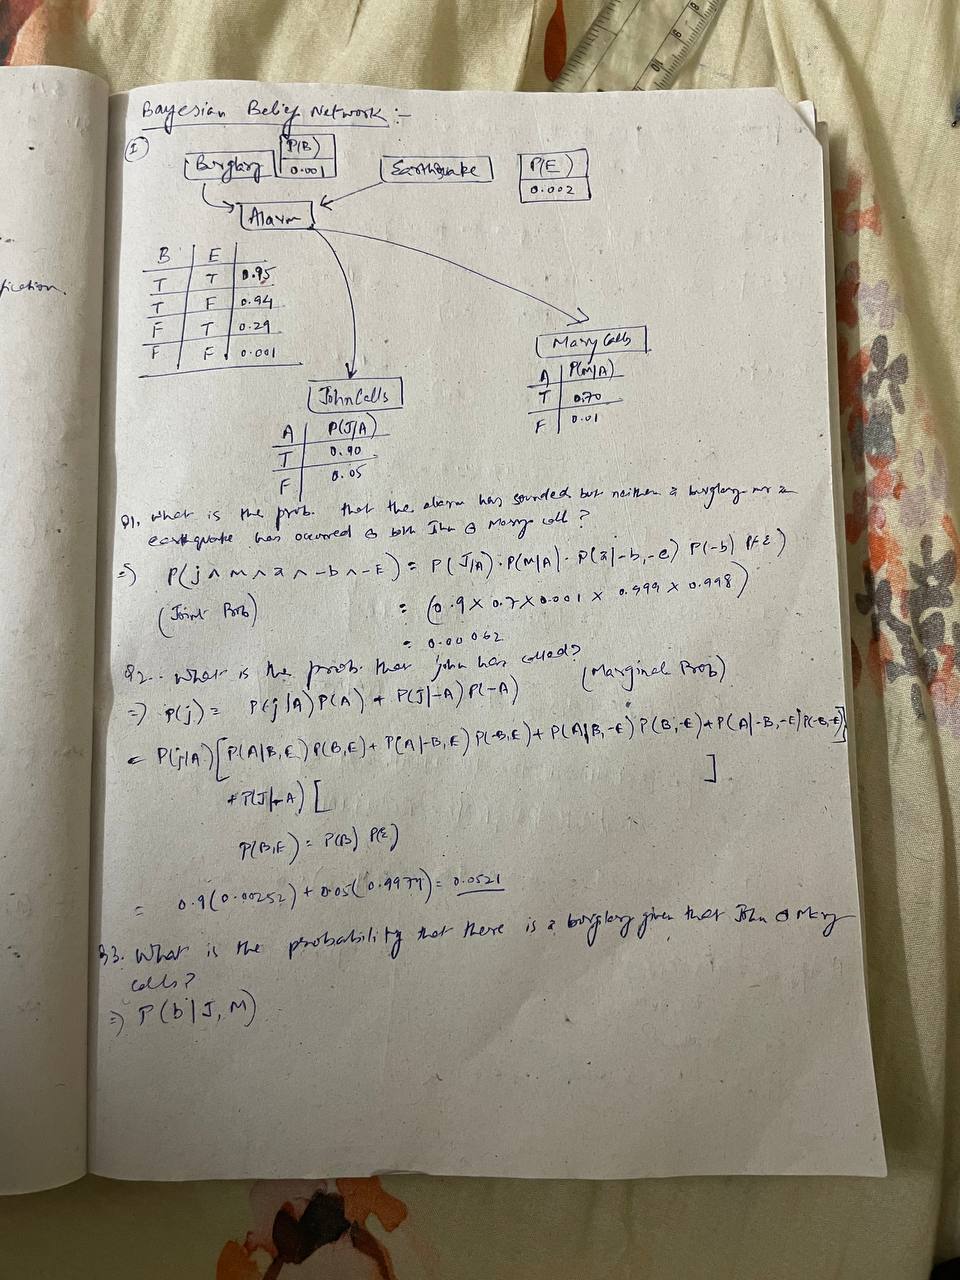 Bayesian Belief Network :-
①
P(B)
Burglary
0.001
Earthquake
P(E)
0.002
Alarm
B E
T T 0.95
T F 0.94
F T 0.29
F F 0.001
Mary Calls
A P(M/A)
T 0.70
F 0.01
John Calls
A P(J/A)
T 0.90
F 0.05
Q1. What is the prob. that the alarm has sounded but neither a burglary nor a
earthquake has occurred & both John & Mary call ?
=) P(j ∧ m ∧ a ∧ -b ∧ -E) = P(J/A) · P(M/A) · P(a|-b,-e) P(-b) P(-E)
(Joint Prob) = (0.9 x 0.7 x 0.001 x 0.999 x 0.998)
= 0.00062
Q2. What is the prob. that john has called? (Marginal Prob)
=) P(j) = P(j|A) P(A) + P(J|-A) P(-A)
= P(j|A) [P(A|B,E) P(B,E) + P(A|-B,E) P(-B,E) + P(A|B,-E) P(B,-E) + P(A|-B,-E) P(-B,-E)]
+ P(J|-A) [ ]
P(B,E) = P(B) P(E)
= 0.9(0.00252) + 0.05(0.9974) = 0.0521
Q3. What is the probability that there is a burglary given that John & Mary
calls?
=) P(b|J, M)
fication.